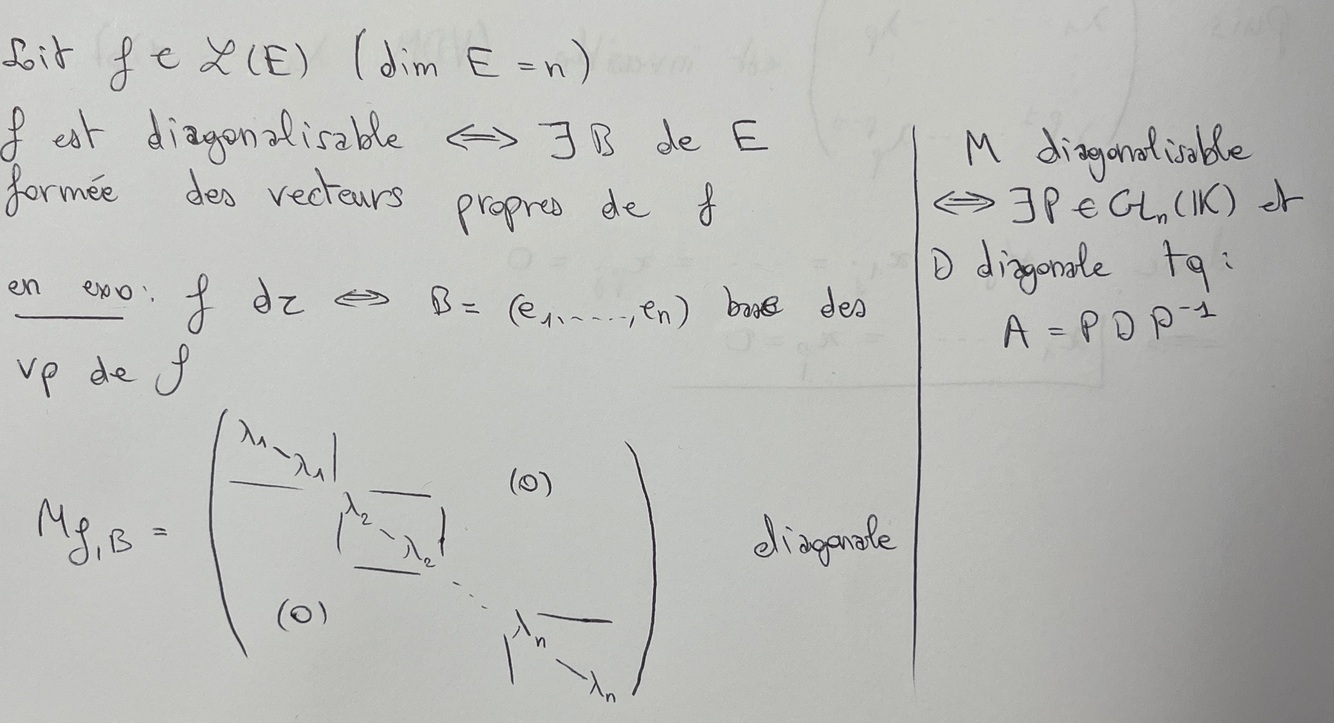 Soit f ∈ ℒ(E) (dim E = n)
f est diagonalisable ⟺ ∃ B de E
formée des vecteurs propres de f
en exo: f dz ⟺ B = (e₁,....,eₙ) base des
vp de f
M_{f,B} = ( λ₁ ⋱ λ₁ | λ₂ ⋱ λ₂ ⋱ λₙ ⋱ λₙ ) (0) (0) diagonale
M diagonalisable
⟺ ∃P ∈ GLₙ(𝕂) et
D diagonale tq:
A = P D P⁻¹